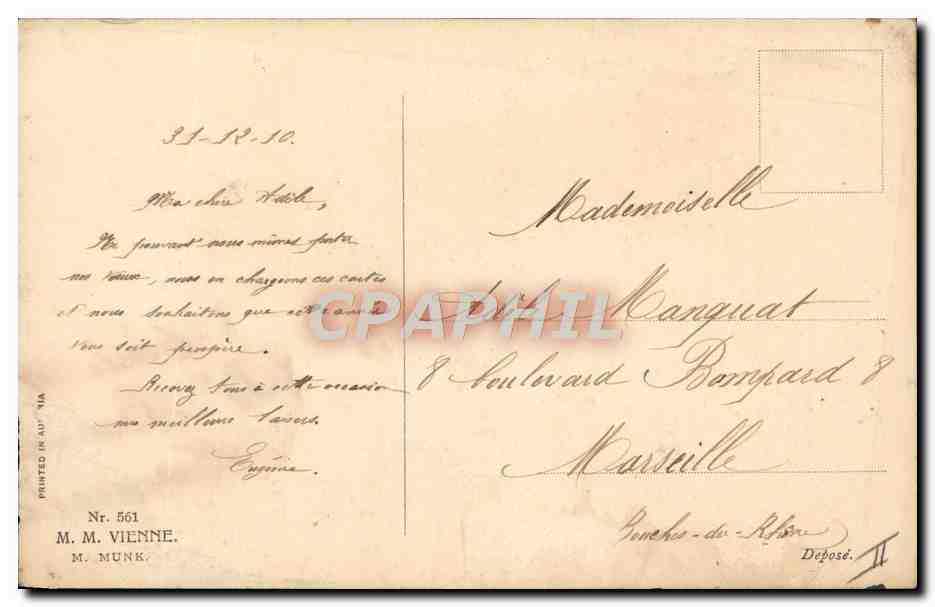 31-12-10.
Ma chère Adèle,
Ne pouvant nous mêmes porter
nos vœux, nous en chargeons ces cartes
et nous souhaitons que cette année
vous soit prospère.
Recevez tous à cette occasion
nos meilleurs baisers.
Eugénie.
PRINTED IN AUSTRIA
Nr. 561
M. M. VIENNE.
M. MUNK.
Mademoiselle
Adèle Manguat
8 boulevard Bompard 8
Marseille
Bouches-du-Rhône
Déposé.
II
CPAPHIL